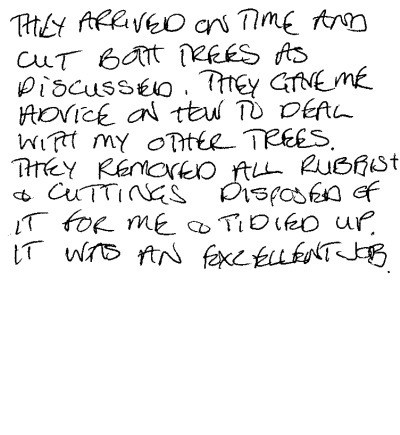 THEY ARRIVED ON TIME AND
CUT BOTH TREES AS
DISCUSSED. THEY GAVE ME
ADVICE ON HOW TO DEAL
WITH MY OTHER TREES.
THEY REMOVED ALL RUBBISH
& CUTTINGS DISPOSED OF
IT FOR ME & TIDIED UP.
IT WAS AN EXCELLENT JOB.